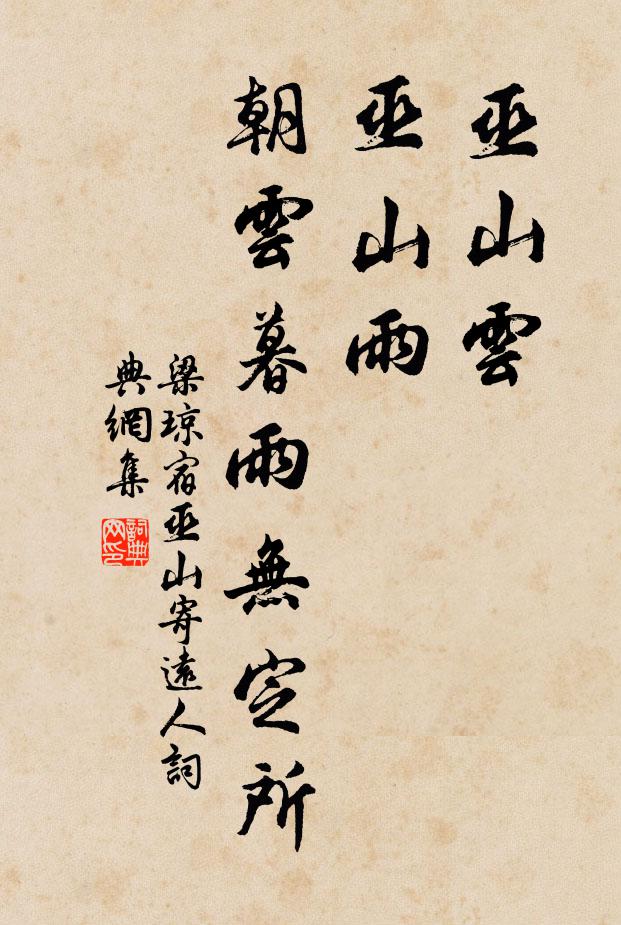 巫山雲
巫山雨
朝雲暮雨無定所
梁琼宿巫山寄遠人詞
典網集
詞典网印